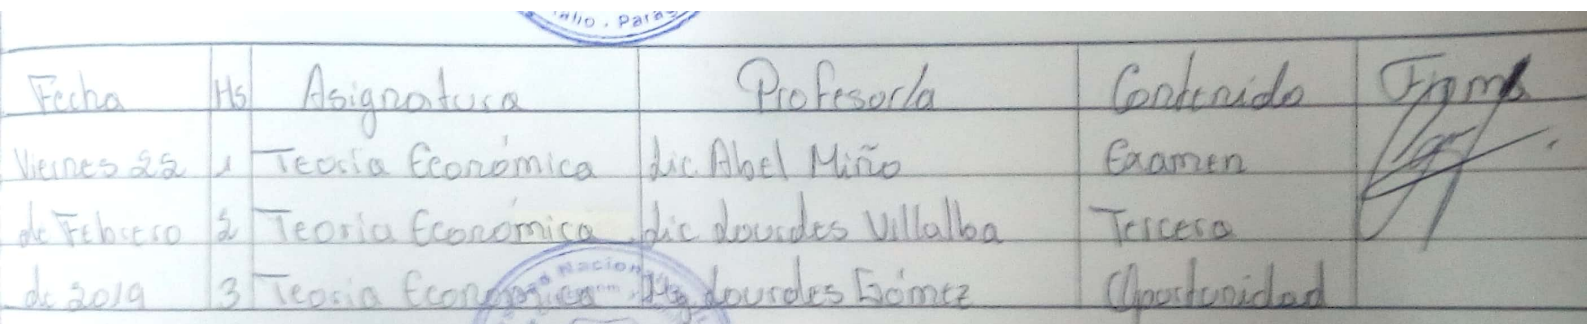 alio . Para
Fecha Hs Asignatura Profesor/a Contenido Firma
Viernes 22 1 Teoría Económica Lic. Abel Miño Examen
de Febrero 2 Teoria Económica Lic Lourdes Villalba Tercera
de 2019 3 Teoria Económica Lourdes Gómez Oportunidad
Nacion